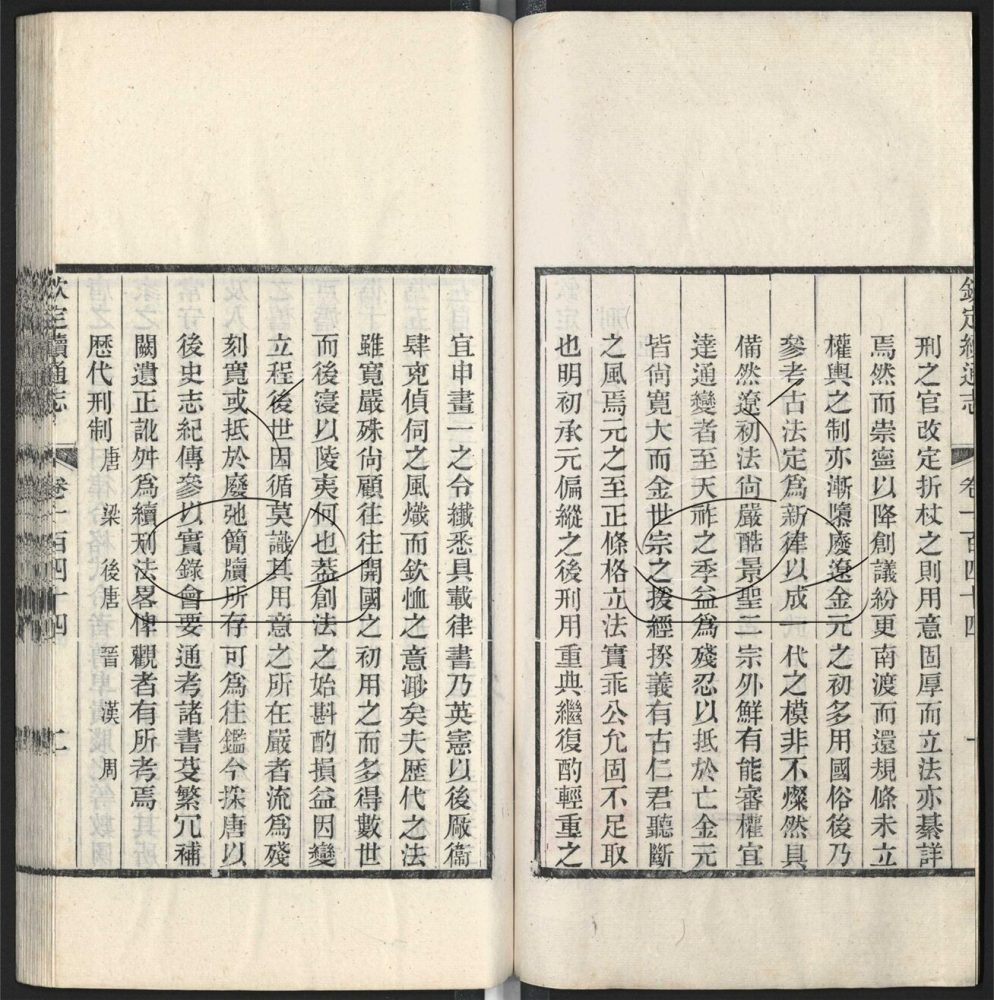 欽定續通志 卷一百四十四 一
刑之官改定折杖之則用意固厚而立法亦綦詳
焉然而崇寧以降創議紛更南渡而還規條未立
權輿之制亦漸隳廢遼金元之初多用國俗後乃
參考古法定為新律以成一代之模非不燦然具
備然遼初法尚嚴酷景聖二宗外鮮有能審權宜
達通變者至天祚之季益為殘忍以抵於亡金元
皆尚寬大而金世宗之援經揆義有古仁君聽斷
之風焉元之至正條格立法實乖公允固不足取
也明初承元偏縱之後刑用重典繼復酌輕重之
宜申畫一之令纖悉具載律書乃英憲以後厰衞
肆克偵伺之風熾而欽恤之意渺矣夫歷代之法
雖寬嚴殊尚顧往往開國之初用之而多得數世
而後寖以陵夷何也葢創法之始斟酌損益因變
立程後世因循莫識其用意之所在嚴者流為殘
刻寬或抵於廢弛簡牘所存可為往鑑今採唐以
後史志紀傳參以實錄會要通考諸書芟繁冗補
闕遺正訛舛為續刑法畧俾觀者有所考焉
歷代刑制 唐 梁 後唐 晉 漢 周
欽定續通志 卷一百四十四 二